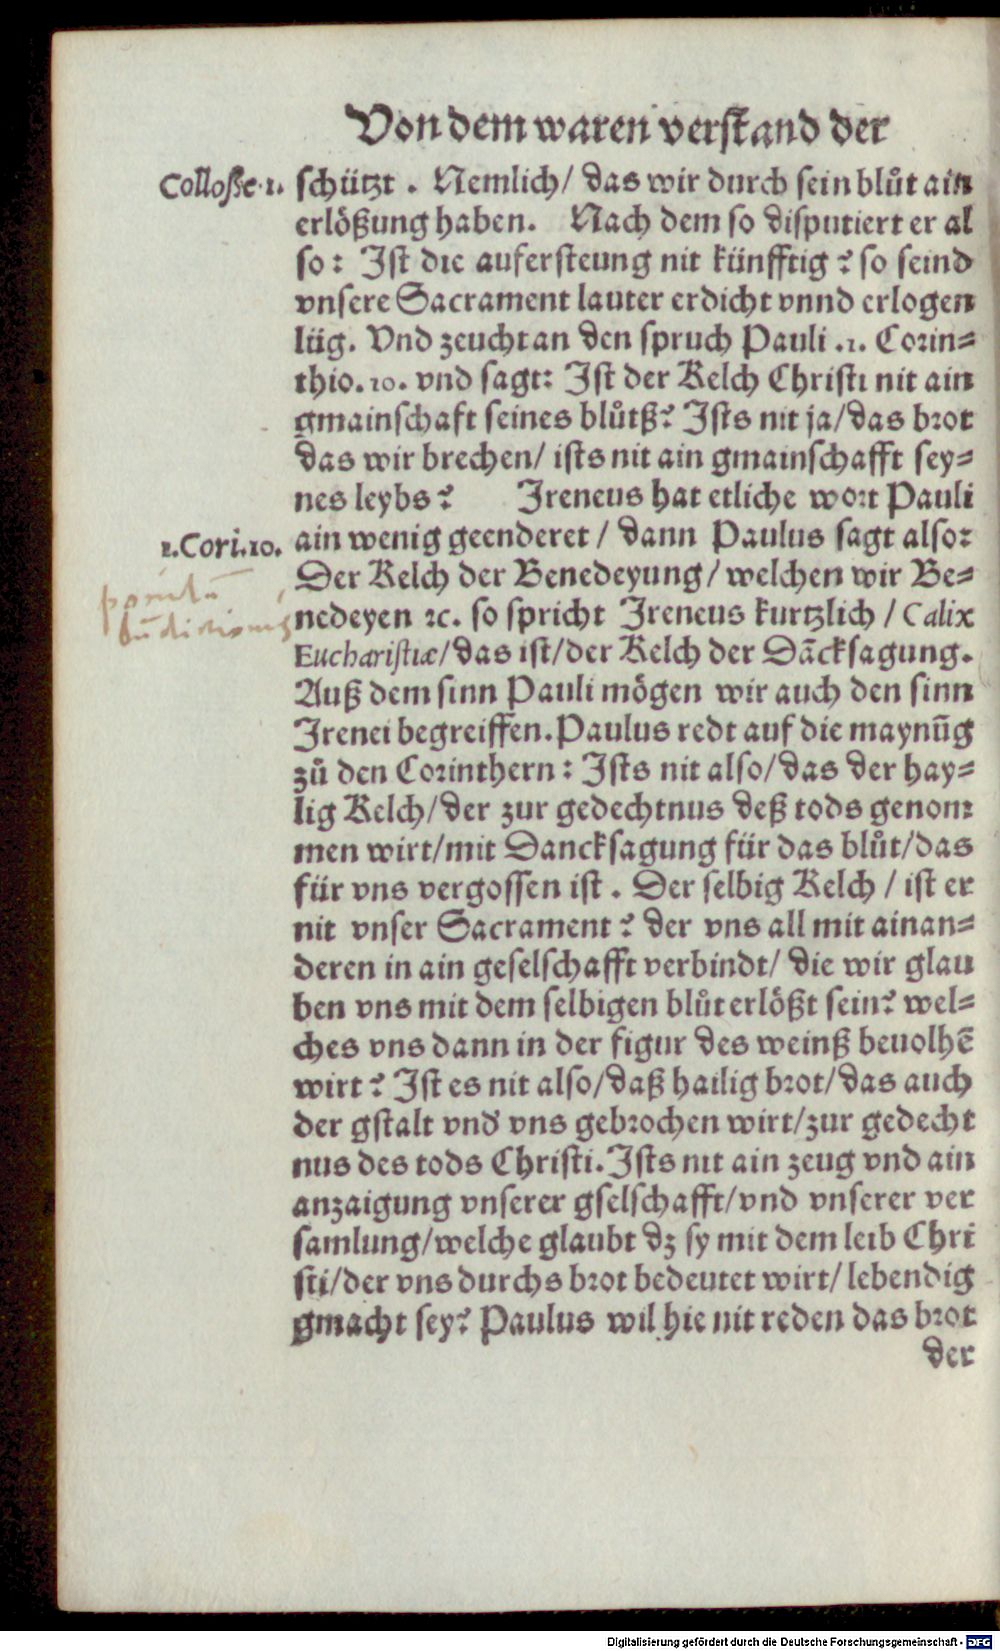 Von dem waren verstand der
Collosse.1. schützt . Nemlich/ das wir durch sein blůt ain
erlößung haben. Nach dem so disputiert er al
so: Ist die aufersteung nit künfftig? so seind
vnsere Sacrament lauter erdicht vnnd erlogen
lüg. Vnd zeucht an den spruch Pauli .1. Corin=
thio.10. vnd sagt: Ist der Kelch Christi nit ain
gmainschaft seines blůtß? Ists nit ja/das brot
das wir brechen/ ists nit ain gmainschafft sey=
nes leybs? Ireneus hat etliche wort Pauli
1.Cori.10. ain wenig geenderet / dann Paulus sagt also:
Der Kelch der Benedeyung/welchen wir Be=
nedeyen ꝛc. so spricht Ireneus kurtzlich / Calix
Eucharistiæ/das ist/der Kelch der Dācksagung.
Auß dem sinn Pauli mögen wir auch den sinn
Irenei begreiffen.Paulus redt auf die maynūg
zů den Corinthern: Ists nit also/das der hay=
lig Kelch/der zur gedechtnus deß tods genom:
men wirt/mit Dancksagung für das blůt/das
für vns vergossen ist . Der selbig Kelch / ist er
nit vnser Sacrament? der vns all mit ainan=
deren in ain geselschafft verbindt/ die wir glau
ben vns mit dem selbigen blůt erlößt sein? wel=
ches vns dann in der figur des weinß beuolhē
wirt? Ist es nit also/daß hailig brot/das auch
der gstalt vnď vns gebrochen wirt/zur gedecht
nus des tods Christi.Ists nit ain zeug vnd ain
anzaigung vnserer gselschafft/vnd vnserer ver
samlung/welche glaubt dz sy mit dem leib Chri
sti/der vns durchs brot bedeutet wirt/lebendig
gmacht sey? Paulus wil hie nit reden das brot
der
Digitalisierung gefördert durch die Deutsche Forschungsgemeinschaft - DFG